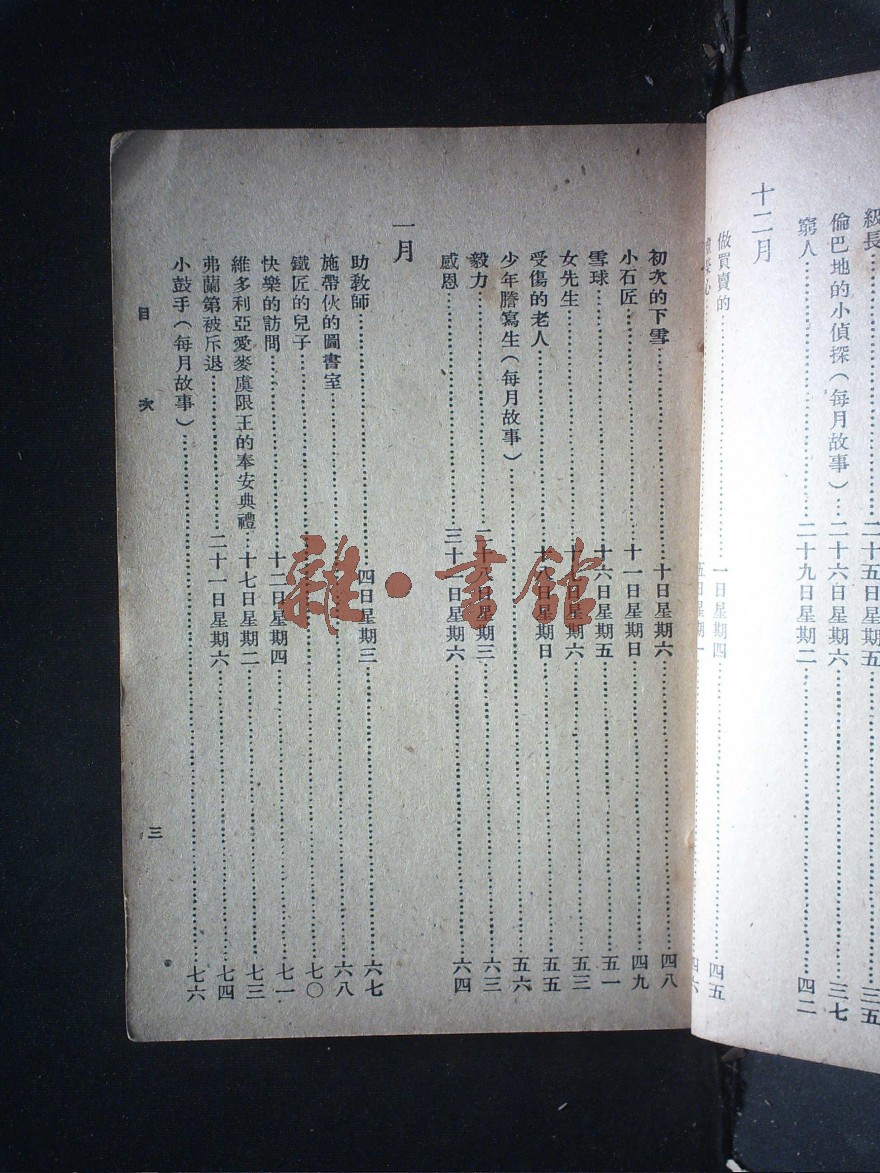 級長……二十五日星期五……三五
倫巴地的小偵探（每月故事）……二十六日星期六……三七
窮人……二十九日星期二……四二
十二月
做買賣的……一日星期四……四五
五日星期一……四六
初次的下雪……十日星期六……四八
小石匠……十一日星期日……四九
雪球……十六日星期五……五一
女先生……十七日星期六……五三
受傷的老人……十八日星期日……五五
少年謄寫生（每月故事）……五六
毅力……二十八日星期三……六三
感恩……三十一日星期六……六四
一月
助教師……四日星期三……六七
施帶伙的圖書室……六八
鐵匠的兒子……七〇
快樂的訪問……十二日星期四……七一
維多利亞愛麥虞限王的奉安典禮……十七日星期二……七三
弗蘭第被斥退……二十一日星期六……七四
小鼓手（每月故事）……七六
目次
三
雜·書館